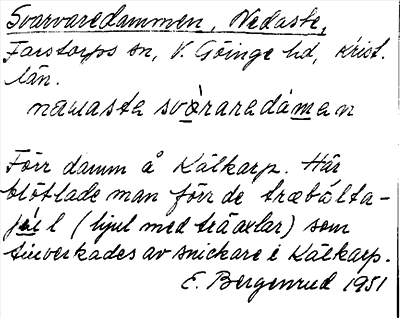 Svarvaredammen, Nedaste,
Farstorps sn, V. Göinge hd, Krist.
län.
nawasta svoraredamen
Förr damm å Kälkarp. Här
blötlade man förr de træbålta-
jul (hjul med träaxlar) som
tillverkades av snickare i Kälkarp.
E. Bergenrud 1951